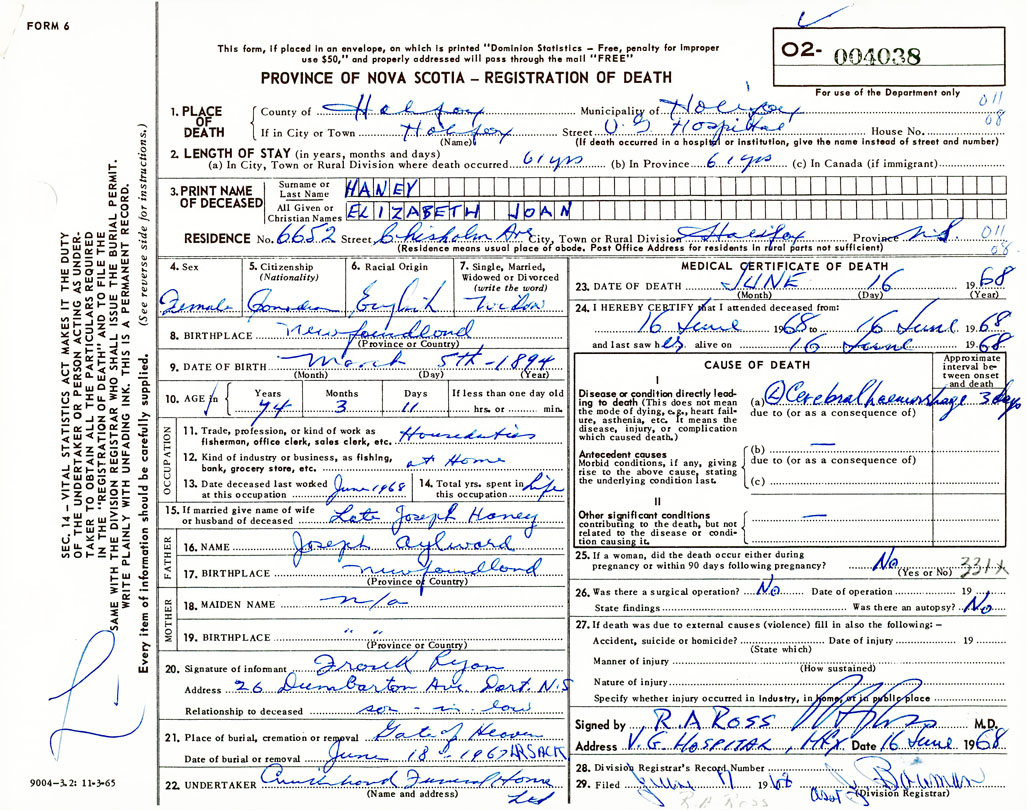 FORM 6
This form, if placed in an envelope, on which is printed "Dominion Statistics – Free, penalty for improper
use $50," and properly addressed will pass through the mail "FREE"
PROVINCE OF NOVA SCOTIA – REGISTRATION OF DEATH
O2- 004038
For use of the Department only
011
08
SEC. 14 – VITAL STATISTICS ACT MAKES IT THE DUTY
OF THE UNDERTAKER OR PERSON ACTING AS UNDER-
TAKER TO OBTAIN ALL THE PARTICULARS REQUIRED
IN THE "REGISTRATION OF DEATH" AND TO FILE THE
SAME WITH THE DIVISION REGISTRAR WHO SHALL ISSUE THE BURIAL PERMIT.
WRITE PLAINLY WITH UNFADING INK. THIS IS A PERMANENT RECORD.
Every item of information should be carefully supplied. (See reverse side for instructions.)
1. PLACE OF DEATH
County of Halifax Municipality of Halifax
If in City or Town Halifax Street V G Hospital House No.
(Name) (If death occurred in a hospital or institution, give the name instead of street and number)
2. LENGTH OF STAY (in years, months and days)
(a) In City, Town or Rural Division where death occurred 61 yrs (b) In Province 61 yrs (c) In Canada (if immigrant)
3. PRINT NAME OF DECEASED
Surname or Last Name HANEY
All Given or Christian Names ELIZABETH JOAN
RESIDENCE No. 6652 Street Chisholm Ave City, Town or Rural Division Halifax Province N.S. 011
(Residence means usual place of abode. Post Office Address for residents in rural parts not sufficient) 08
4. Sex Female
5. Citizenship (Nationality) Canadian
6. Racial Origin English
7. Single, Married, Widowed or Divorced (write the word) Widow
8. BIRTHPLACE Newfoundland
(Province or Country)
9. DATE OF BIRTH March 5th - 1894
(Month) (Day) (Year)
10. AGE in Years 74 Months 3 Days 11 If less than one day old hrs. or min.
OCCUPATION
11. Trade, profession, or kind of work as fisherman, office clerk, sales clerk, etc. Houseduties
12. Kind of industry or business, as fishing, bank, grocery store, etc. at Home
13. Date deceased last worked at this occupation June 1968
14. Total yrs. spent in this occupation Life
15. If married give name of wife or husband of deceased Late Joseph Haney
FATHER
16. NAME Joseph Aylward
17. BIRTHPLACE Newfoundland
(Province or Country)
MOTHER
18. MAIDEN NAME n/a
19. BIRTHPLACE " "
(Province or Country)
20. Signature of informant Frank Ryan
Address 26 Dumbarton Ave. Dart. N.S
Relationship to deceased son-in-law
21. Place of burial, cremation or removal Gate of Heaven
Date of burial or removal June 18th - 1967 LR SACK
22. UNDERTAKER Funeral Home
(Name and address) Ltd
9004–3.2: 11-3-65
MEDICAL CERTIFICATE OF DEATH
23. DATE OF DEATH JUNE 16 1968
(Month) (Day) (Year)
24. I HEREBY CERTIFY that I attended deceased from:
16 June 1968 to 16 June 1968
and last saw her alive on 16 June 1968
CAUSE OF DEATH
Approximate interval between onset and death
I
Disease or condition directly leading to death (This does not mean the mode of dying, e.g., heart failure, asthenia, etc. It means the disease, injury, or complication which caused death.)
(a) (L) Cerebral haemorrhage 3 days
due to (or as a consequence of)
Antecedent causes
Morbid conditions, if any, giving rise to the above cause, stating the underlying condition last.
(b) —
due to (or as a consequence of)
(c)
II
Other significant conditions
contributing to the death, but not related to the disease or condition causing it. —
25. If a woman, did the death occur either during
pregnancy or within 90 days following pregnancy? No
(Yes or No) 331x
26. Was there a surgical operation? No Date of operation 19
State findings Was there an autopsy? No
27. If death was due to external causes (violence) fill in also the following: –
Accident, suicide or homicide? Date of injury 19
(State which)
Manner of injury
(How sustained)
Nature of injury
Specify whether injury occurred in industry, in home, or in public place
Signed by R. A ROSS M.D.
Address V. G. HOSPITAL, HFX Date 16 June 1968
28. Division Registrar's Record Number
29. Filed June 17 1968 J. Bowman
Asst (Division Registrar)
R A Ross